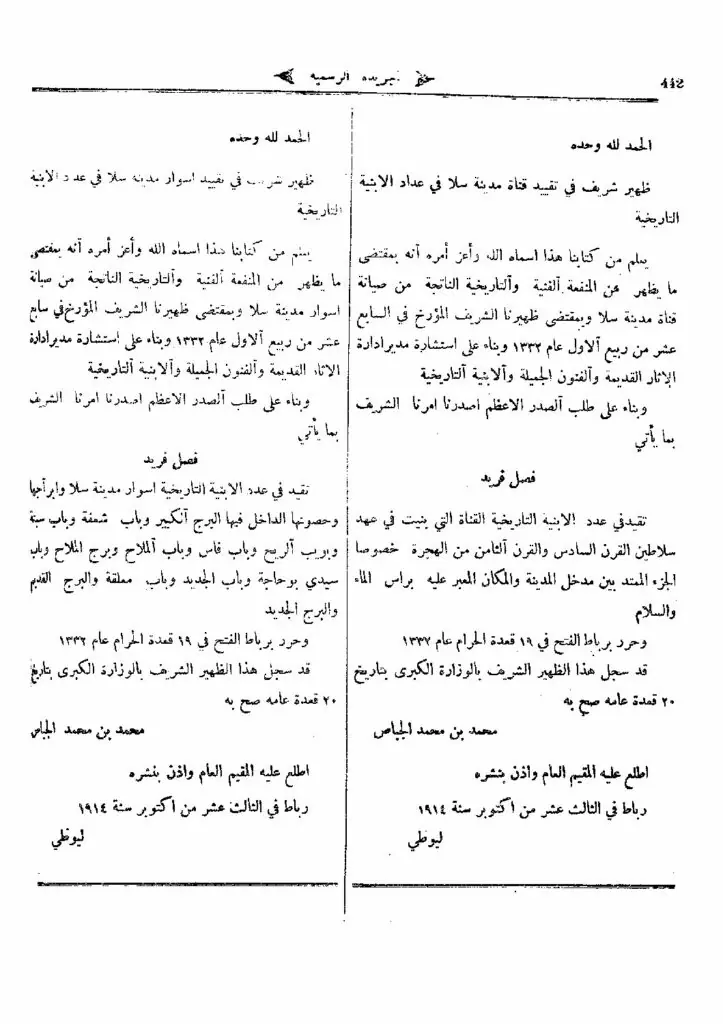 442
الجريدة الرسمية
الحمد لله وحده
ظهير شريف في تقييد قناة مدينة سلا في عداد الابنية
التاريخية
يعلم من كتابنا هذا اسماه الله وأعز أمره آنه بمقتضى
ما يظهر من المنفعة الفنية وآلتاريخية الناتجة من صيانة
قناة مدينة سلا وبمقتضى ظهيرنا الشريف المؤرخ في السابع
عشر من ربيع آلاول عام ١٣٣٢ وبناء على استشارة مدير ادارة
الاثار القديمة وآلفنون الجميلة وآلابنية آلتاريخية
وبناء على طلب آلصدر الاعظم اصدرنا امرنا الشريف
بما يأتي
فصل فريد
تقيد في عدد الابنية التاريخية القناة التي بنيت في عهد
سلاطين القرن السادس والقرن آلثامن من الهجرة خصوصا
الجزء الممتد بين مدخل المدينة والمكان المعبر عليه براس الماء
والسلام
وحرر برباط الفتح في ١٩ قعدة الحرام عام ١٣٣٢
قد سجل هذا الظهير الشريف بالوزارة الكبرى بتاريخ
٢٠ قعدة عامه صح به
محمد بن محمد الجباص
اطلع عليه المقيم العام واذن بنشره
رباط في الثالث عشر من اكتوبر سنة ١٩١٤
ليوطي
الحمد لله وحده
ظهير شريف في تقييد اسوار مدينة سلا في عدد الابنية
التاريخية
يعلم من كتابنا هذا اسماه الله وأعز أمره آنه بمقتضى
ما يظهر من المنفعة آلفنية وآلتاريخية الناتجة من صيانة
اسوار مدينة سلا وبمقتضى ظهيرنا الشريف المؤرخ في سابع
عشر من ربيع آلاول عام ١٣٣٢ وبناء على استشارة مدير ادارة
الاثار القديمة وآلفنون الجميلة وآلابنية آلتاريخية
وبناء على طلب آلصدر الاعظم اصدرنا امرنا الشريف
بما يأتي
فصل فريد
تقيد في عدد الابنية التاريخية اسوار مدينة سلا وابرآجها
وحصونها الداخل فيها البرج آلكبير وباب شعفة وباب سبتة
وبويب آلريح وباب فاس وباب آلملاح وبرج الملاح وباب
سيدي بوحاجة وباب الجديد وباب معلقة والبرج القديم
والبرج الجديد
وحرر برباط الفتح في ١٩ قعدة الحرام عام ١٣٣٢
قد سجل هذا الظهير الشريف بالوزارة الكبرى بتاريخ
٢٠ قعدة عامه صح به
محمد بن محمد الجباص
اطلع عليه المقيم العام واذن بنشره
رباط في الثالث عشر من اكتوبر سنة ١٩١٤
ليوطي